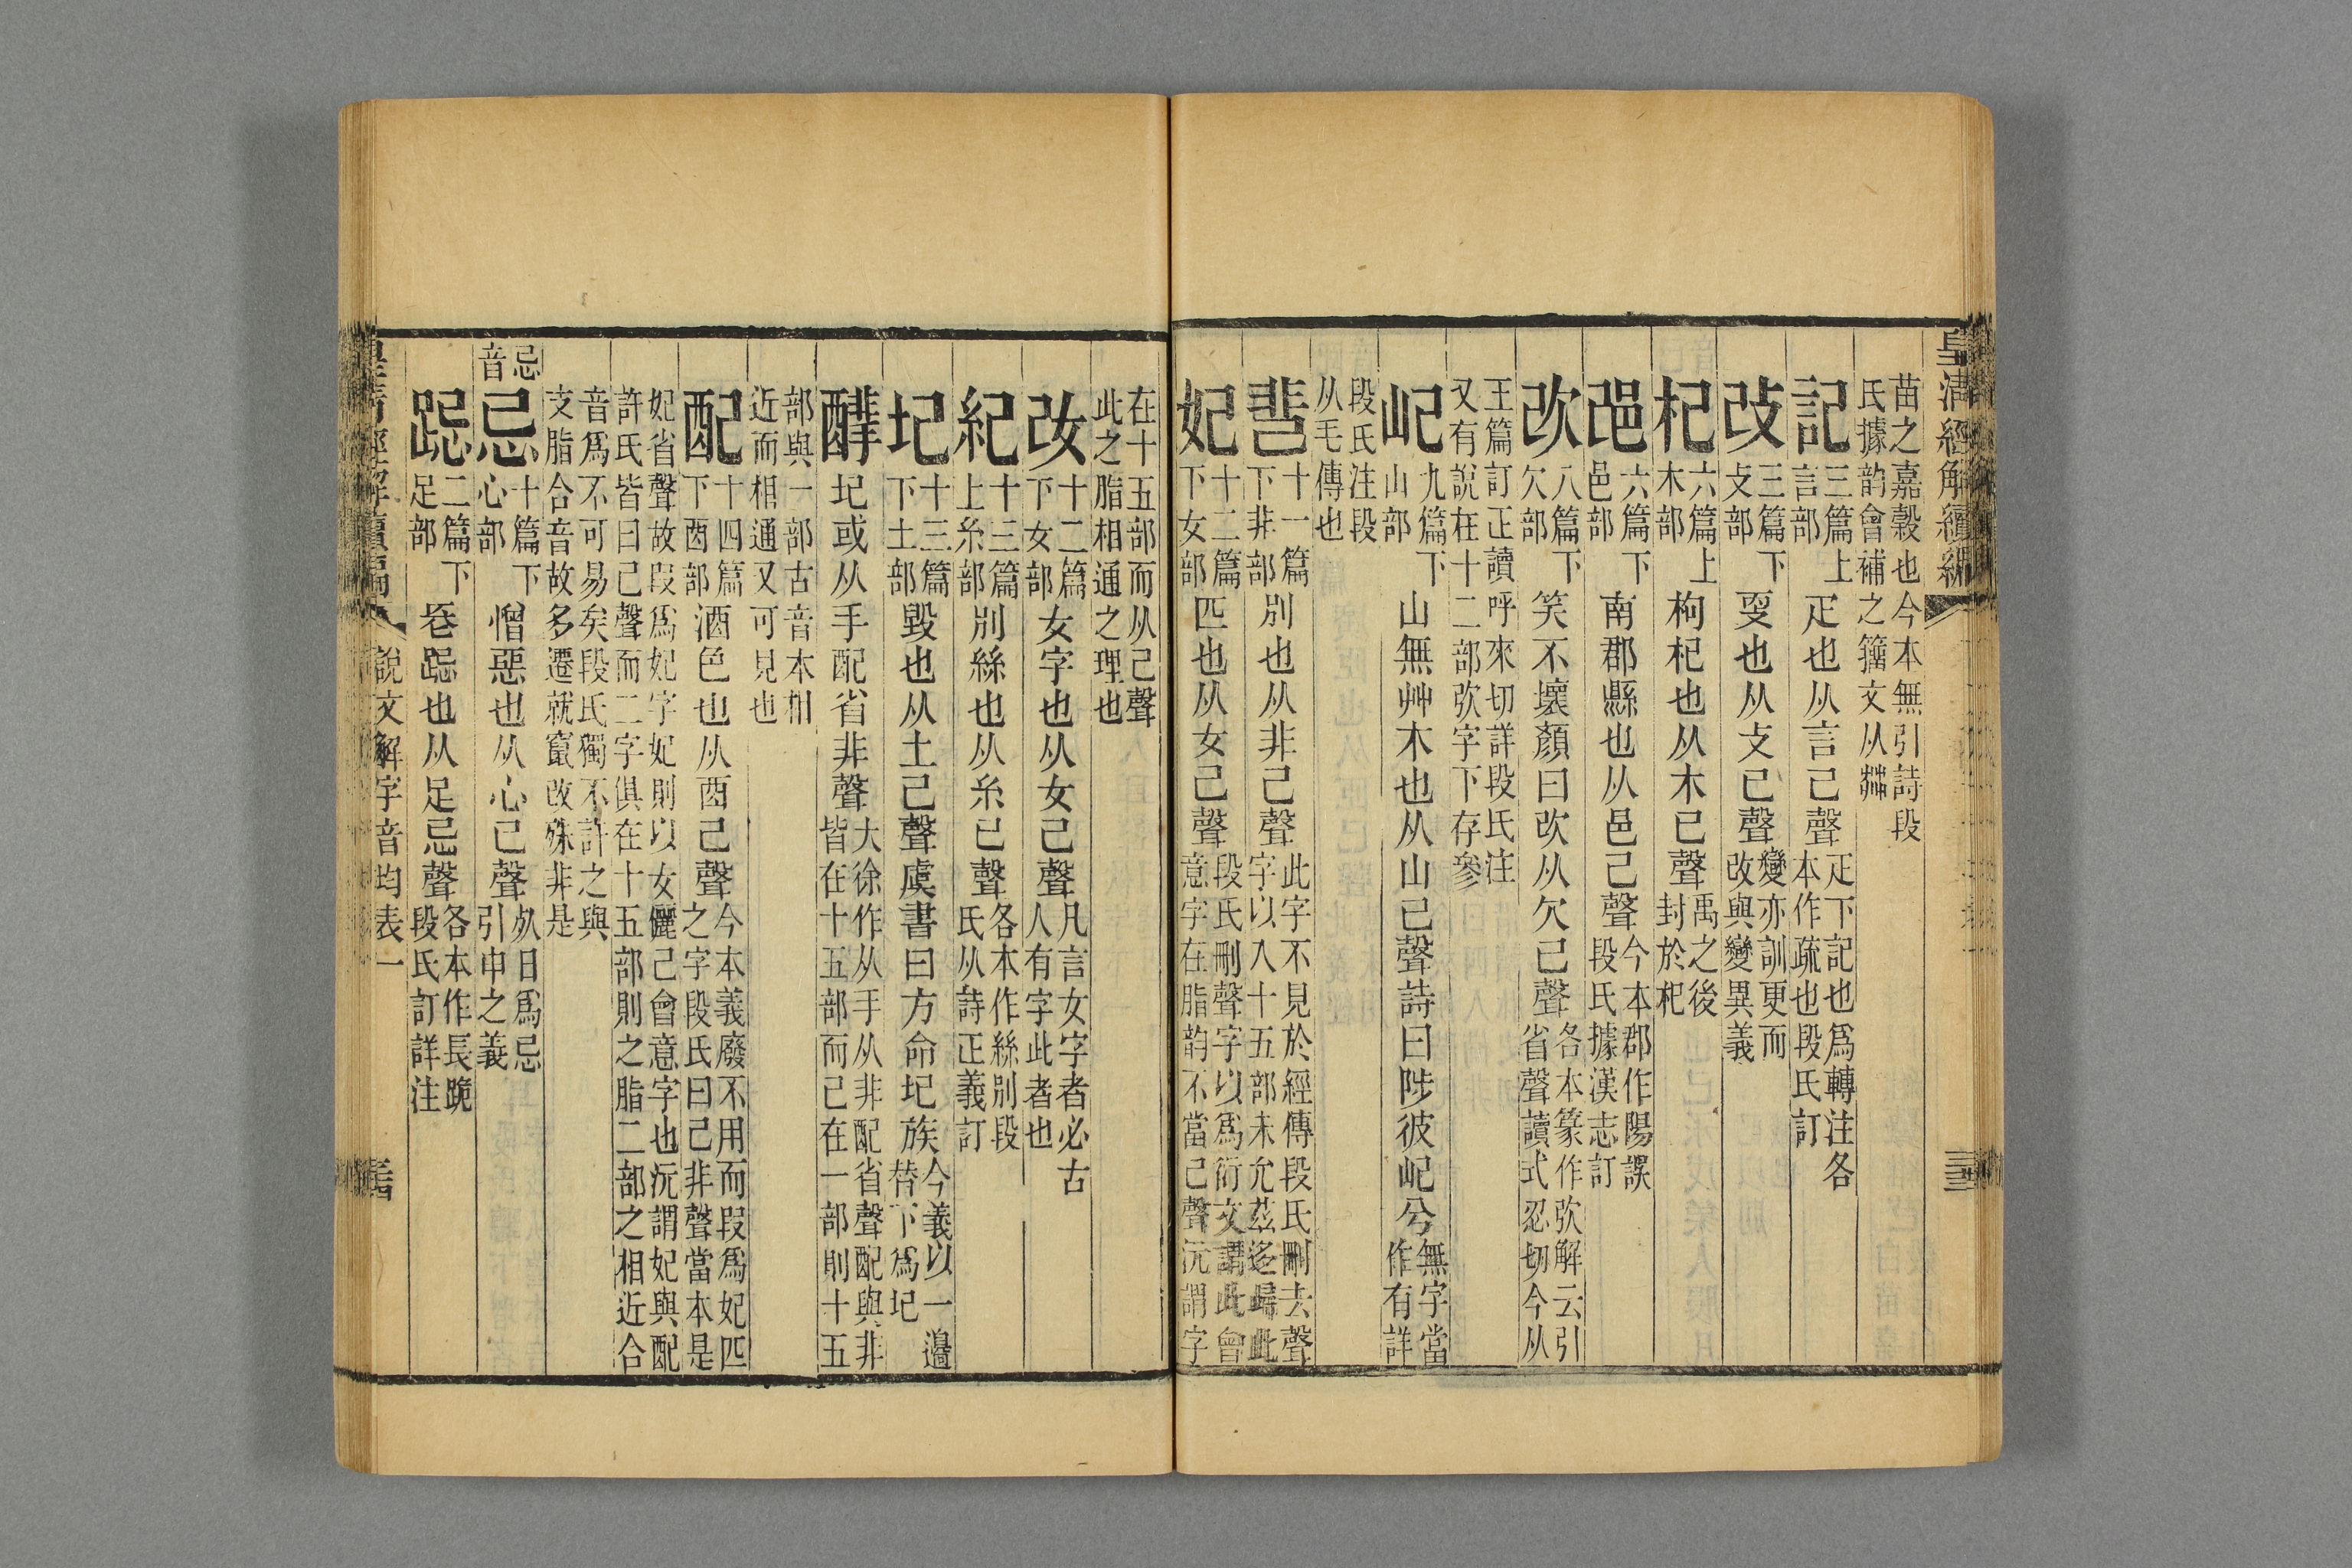 皇清經解續編
苗之嘉穀也今本無引詩段
氏據韵會補之籒文从茻
記三篇上言部疋也从言己聲疋下記也爲轉注各本作疏也段氏訂
改三篇下攴部㪅也从攴己聲變亦訓更而改與變異義
杞六篇上木部枸杞也从木己聲禹之後封於杞
邔六篇下邑部南郡縣也从邑己聲今本郡作陽誤段氏據漢志訂
改八篇下欠部笑不壞顏曰改从欠己聲各本篆作弞解云引省聲讀式忍切今从
王篇訂正讀呼來切詳段氏注
又有說在十二部弞字下存參
屺九篇下山部山無艸木也从山己聲詩曰陟彼屺兮無字當作有詳
段氏注段
从毛傳也
𩇫十一篇下非部別也从非己聲此字不見於經傳段氏刪去聲字以入十五部未允茲迻歸此
妃十二篇下女部匹也从女己聲段氏刪聲字以爲衍文謂此會意字在脂韵不當己聲沅謂字
在十五部而从己聲
此之脂相通之理也
改十二篇下女部女字也从女己聲凡言女字者必古人有字此者也
紀十三篇上糸部別絲也从糸己聲各本作絲別段氏从詩正義訂
圮十三篇下土部毀也从土己聲虞書曰方命圮族今義以一邉替下爲圮
𨣨圮或从手配省非聲大徐作从手从非配省聲配與非皆在十五部而己在一部則十五
部與一部古音本相
近而相通又可見也
配十四篇下酉部酒色也从酉己聲今本義廢不用而叚爲妃匹之字段氏曰己非聲當本是
妃省聲故叚爲妃字妃則以女儷己會意字也沅謂妃與配
許氏皆曰己聲而二字俱在十五部則之脂二部之相近合
音爲不可易矣段氏獨不許之與
支脂合音故多遷就竄改殊非是
忌音
忌十篇下心部憎惡也从心己聲夨日爲忌引申之義
跽二篇下足部𢍏跽也从足忌聲各本作長跪段氏訂詳注
皇清經解續編 說文解字音均表一